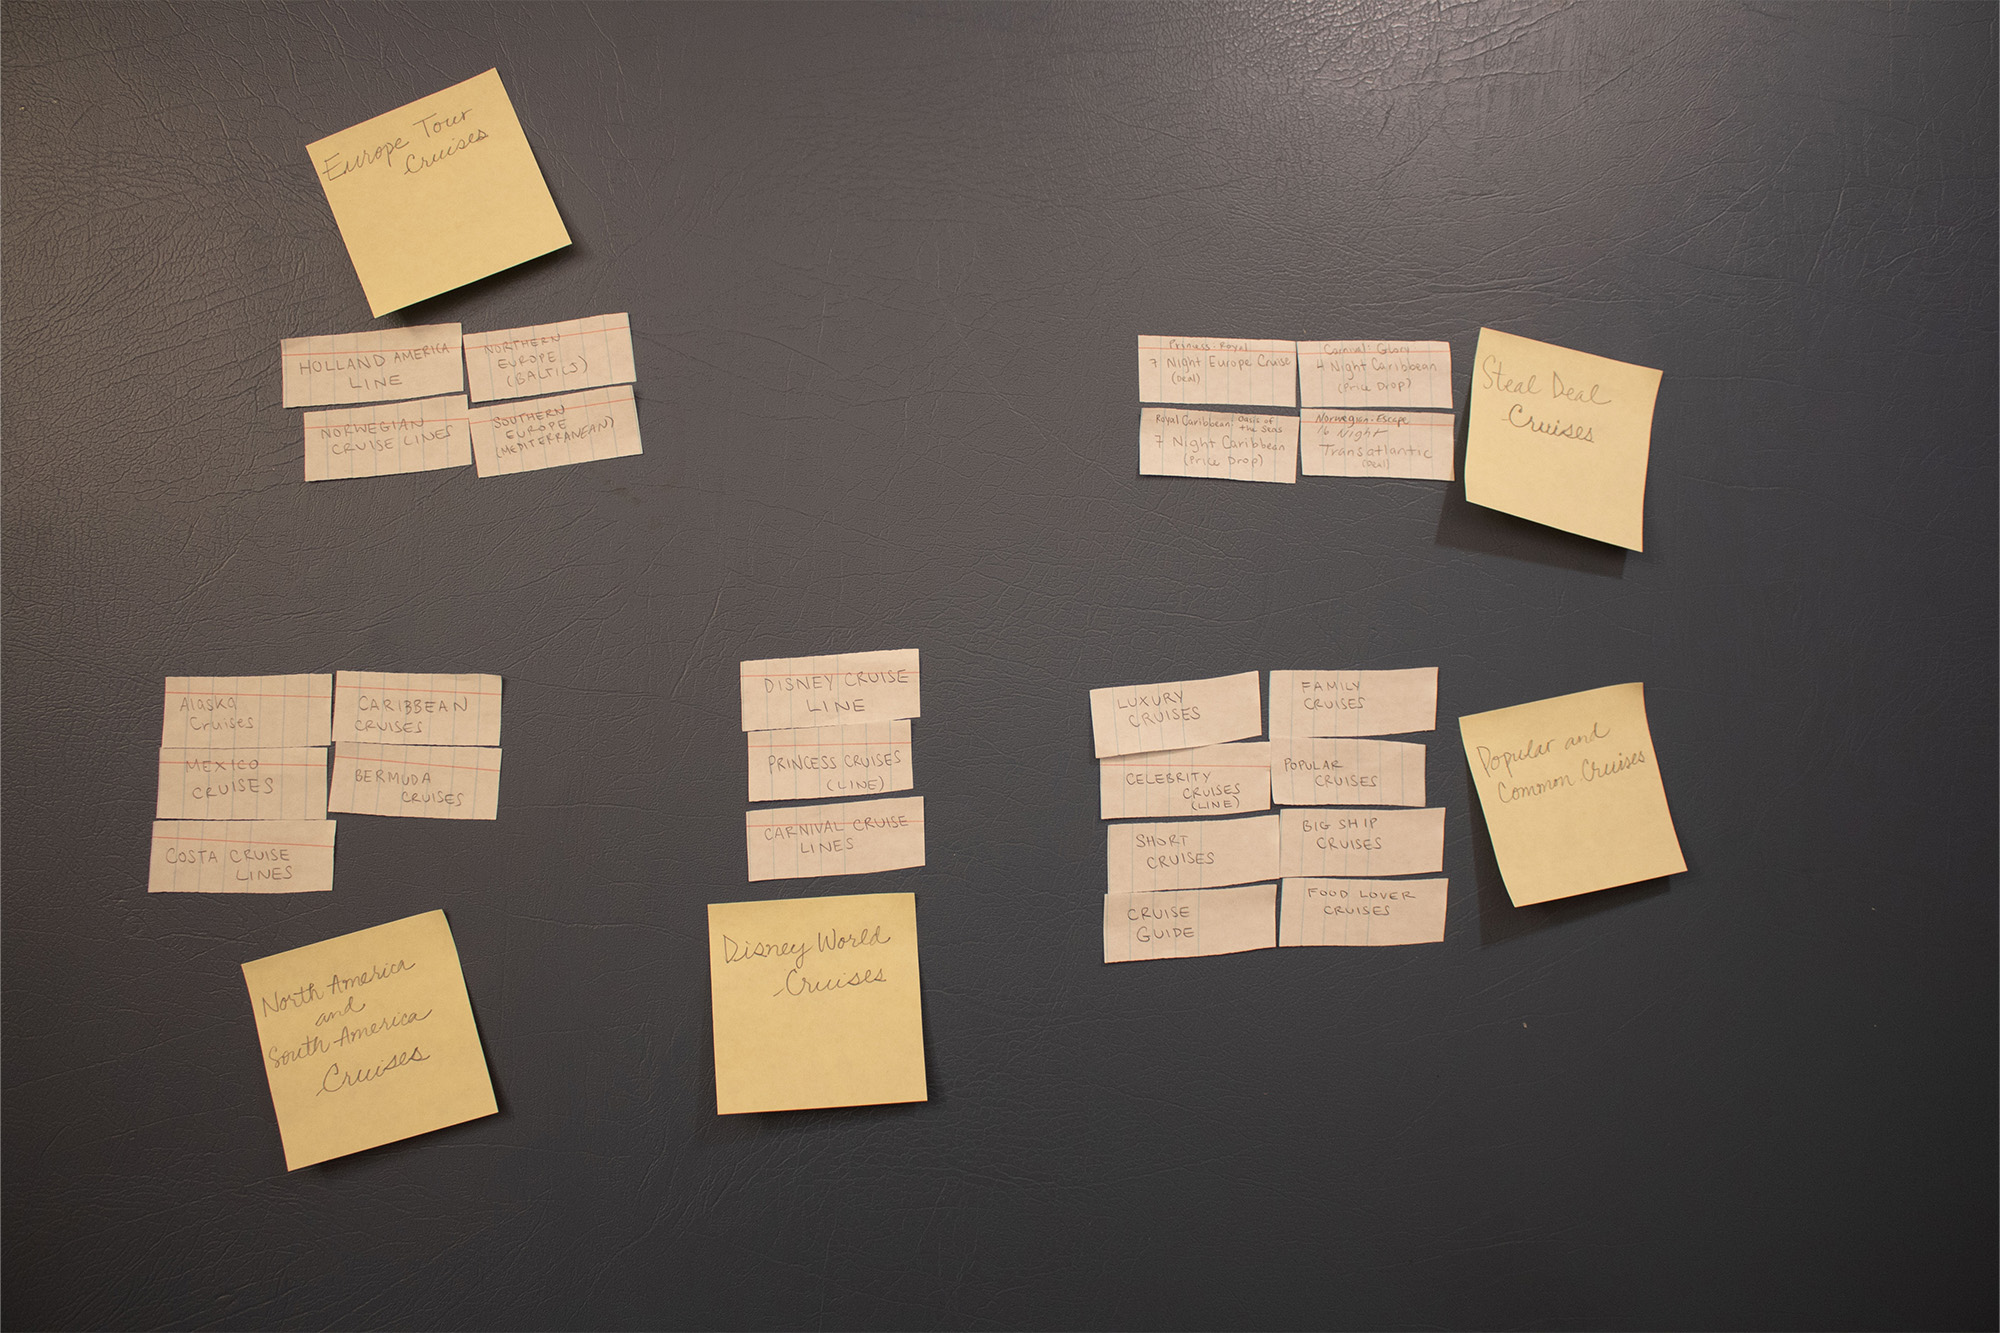 Europe Tour
Cruises
HOLLAND AMERICA
LINE
NORTHERN
EUROPE
(BALTICS)
NORWEGIAN
CRUISE LINES
SOUTHERN
EUROPE
(MEDITERRANEAN)
Princess: Royal
7 Night Europe Cruise
(Deal)
Carnival: Glory
4 Night Caribbean
(Price Drop)
Royal Caribbean: Oasis of
the Seas
7 Night Caribbean
(Price Drop)
Norwegian: Escape
16 Night
Transatlantic
(Deal)
Steal Deal
Cruises
Alaska
Cruises
CARIBBEAN
CRUISES
MEXICO
CRUISES
BERMUDA
CRUISES
COSTA CRUISE
LINES
North America
and
South America
Cruises
DISNEY CRUISE
LINE
PRINCESS CRUISES
(LINE)
CARNIVAL CRUISE
LINES
Disney World
Cruises
LUXURY
CRUISES
FAMILY
CRUISES
CELEBRITY
CRUISES
(LINE)
POPULAR
CRUISES
SHORT
CRUISES
BIG SHIP
CRUISES
CRUISE
GUIDE
FOOD LOVER
CRUISES
Popular and
Common Cruises